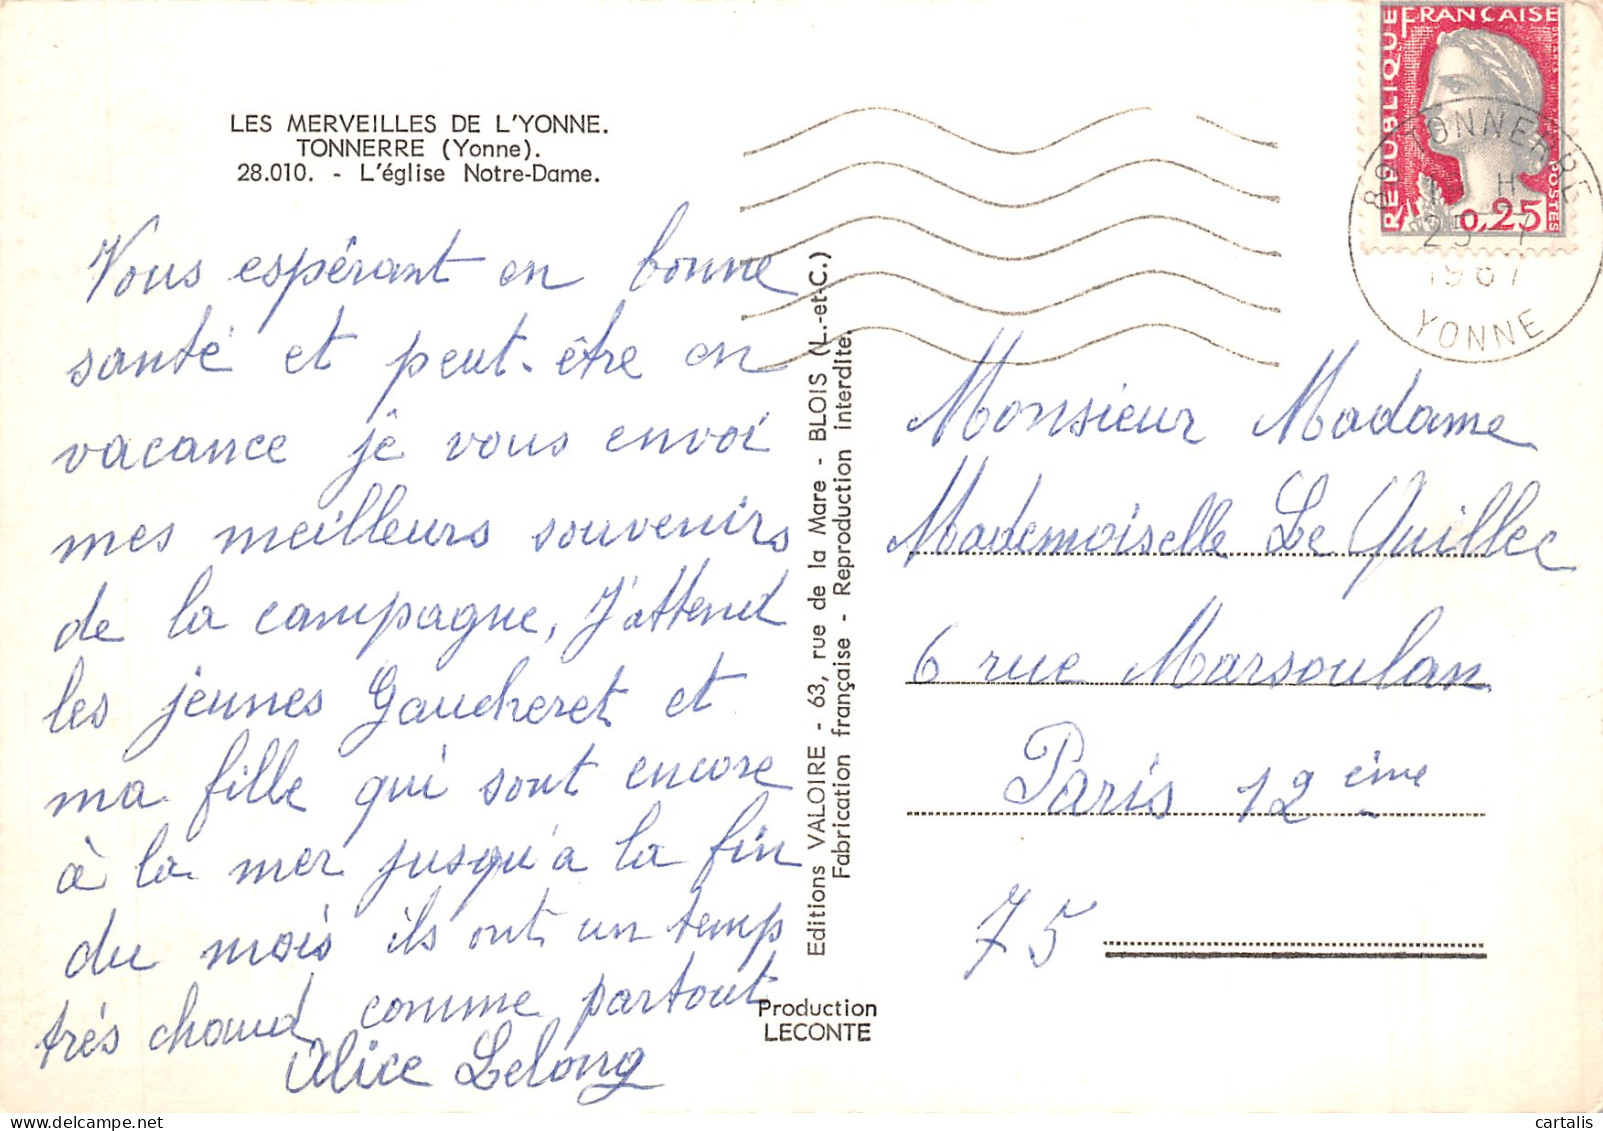 LES MERVEILLES DE L'YONNE.
TONNERRE (Yonne).
28.010. - L'église Notre-Dame.
Vous espérant en bonne
santé et peut-être en
vacance je vous envoi
mes meilleurs souvenirs
de la campagne, J'attend
les jeunes Gaucheret et
ma fille qui sont encore
à la mer jusqu'à la fin
du mois ils ont un temp
trés chaud comme partout
Alice Lelong
Editions VALOIRE - 63, rue de la Mare - BLOIS (L.-et-C.)
Fabrication française - Reproduction interdite.
Production
LECONTE
REPUBLIQUE FRANÇAISE
POSTES
0,25
89 TONNERRE
H
25 - 7
1967
YONNE
Monsieur Madame
Mademoiselle Le Quillec
6 rue Marsoulan
Paris 12 ème
75
cartalis